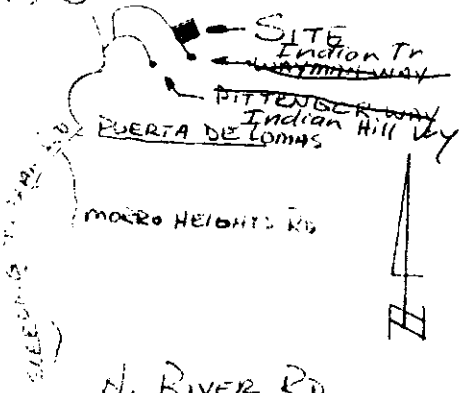 SITE
Indian Tr
WAYMAN WAY
PITTENGER WAY
Indian Hill Wy
PUERTA DE LOMAS
MORRO HEIGHTS RD
N
N. RIVER RD